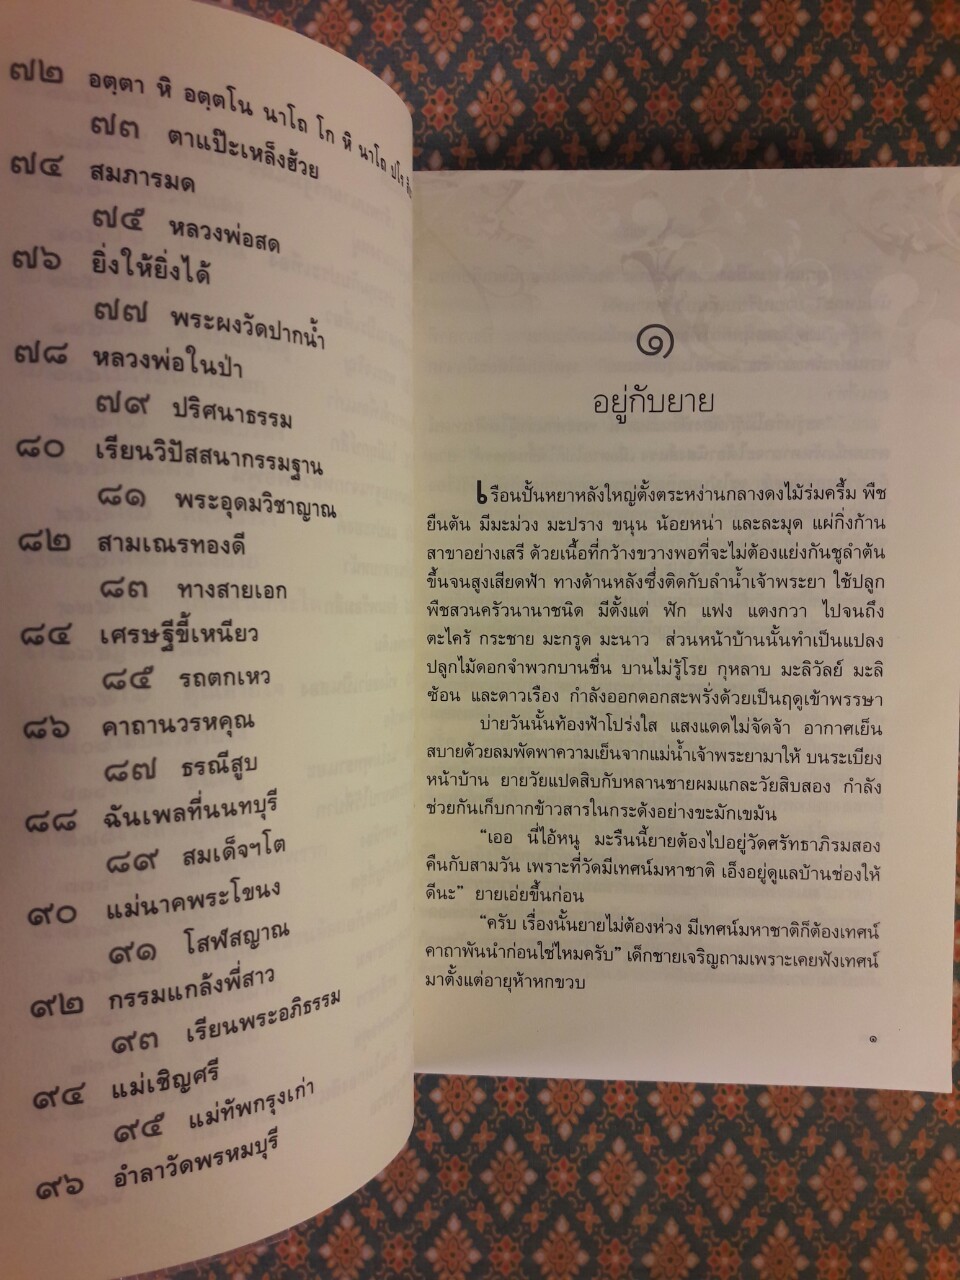 ๗๒ อตฺตา หิ อตฺตโน นาโถ โก หิ นาโถ ปโร
๗๓ ตาแป๊ะเหล็งฮ้วย
๗๔ สมภารมด
๗๕ หลวงพ่อสด
๗๖ ยิ่งให้ยิ่งได้
๗๗ พระผงวัดปากน้ำ
๗๘ หลวงพ่อในป่า
๗๙ ปริศนาธรรม
๘๐ เรียนวิปัสสนากรรมฐาน
๘๑ พระอุดมวิชาญาณ
๘๒ สามเณรทองดี
๘๓ ทางสายเอก
๘๔ เศรษฐีขี้เหนียว
๘๕ รถตกเหว
๘๖ คาถานวรหคุณ
๘๗ ธรณีสูบ
๘๘ ฉันเพลที่นนทบุรี
๘๙ สมเด็จฯโต
๙๐ แม่นาคพระโขนง
๙๑ โสฬสญาณ
๙๒ กรรมแกล้งพี่สาว
๙๓ เรียนพระอภิธรรม
๙๔ แม่เชิญศรี
๙๕ แม่ทัพกรุงเก่า
๙๖ อำลาวัดพรหมบุรี
๑
อยู่กับยาย
เรือนปั้นหยาหลังใหญ่ตั้งตระหง่านกลางดงไม้ร่มครึ้ม พืช
ยืนต้น มีมะม่วง มะปราง ขนุน น้อยหน่า และละมุด แผ่กิ่งก้าน
สาขาอย่างเสรี ด้วยเนื้อที่กว้างขวางพอที่จะไม่ต้องแย่งกันชูลำต้น
ขึ้นจนสูงเสียดฟ้า ทางด้านหลังซึ่งติดกับลำน้ำเจ้าพระยา ใช้ปลูก
พืชสวนครัวนานาชนิด มีตั้งแต่ ฟัก แฟง แตงกวา ไปจนถึง
ตะไคร้ กระชาย มะกรูด มะนาว ส่วนหน้าบ้านนั้นทำเป็นแปลง
ปลูกไม้ดอกจำพวกบานชื่น บานไม่รู้โรย กุหลาบ มะลิวัลย์ มะลิ
ซ้อน และดาวเรือง กำลังออกดอกสะพรั่งด้วยเป็นฤดูเข้าพรรษา
บ่ายวันนั้นท้องฟ้าโปร่งใส แสงแดดไม่จัดจ้า อากาศเย็น
สบายด้วยลมพัดพาความเย็นจากแม่น้ำเจ้าพระยามาให้ บนระเบียง
หน้าบ้าน ยายวัยแปดสิบกับหลานชายผมแกละวัยสิบสอง กำลัง
ช่วยกันเก็บกากข้าวสารในกระด้งอย่างขะมักเขม้น
“เออ นี่ไอ้หนู มะรืนนี้ยายต้องไปอยู่วัดศรัทธาภิรมสอง
คืนกับสามวัน เพราะที่วัดมีเทศน์มหาชาติ เอ็งอยู่ดูแลบ้านช่องให้
ดีนะ” ยายเอ่ยขึ้นก่อน
“ครับ เรื่องนั้นยายไม่ต้องห่วง มีเทศน์มหาชาติก็ต้องเทศน์
คาถาพันนำก่อนใช่ไหมครับ” เด็กชายเจริญถามเพราะเคยฟังเทศน์
มาตั้งแต่อายุห้าหกขวบ
๑